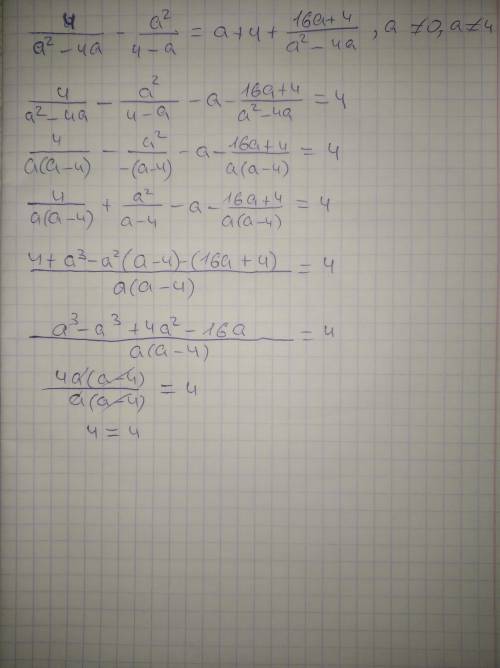 4/(a² - 4a) - a²/(4 - a) = a + 4 + (16a + 4)/(a² - 4a) , a ≠ 0, a ≠ 4
4/(a² - 4a) - a²/(4 - a) - a - (16a + 4)/(a² - 4a) = 4
4/(a(a - 4)) - a²/(-(a - 4)) - a - (16a + 4)/(a(a - 4)) = 4
4/(a(a - 4)) + a²/(a - 4) - a - (16a + 4)/(a(a - 4)) = 4
(4 + a³ - a²(a - 4) - (16a + 4))/(a(a - 4)) = 4
(a³ - a³ + 4a² - 16a)/(a(a - 4)) = 4
(4a(a - 4))/(a(a - 4)) = 4
4 = 4